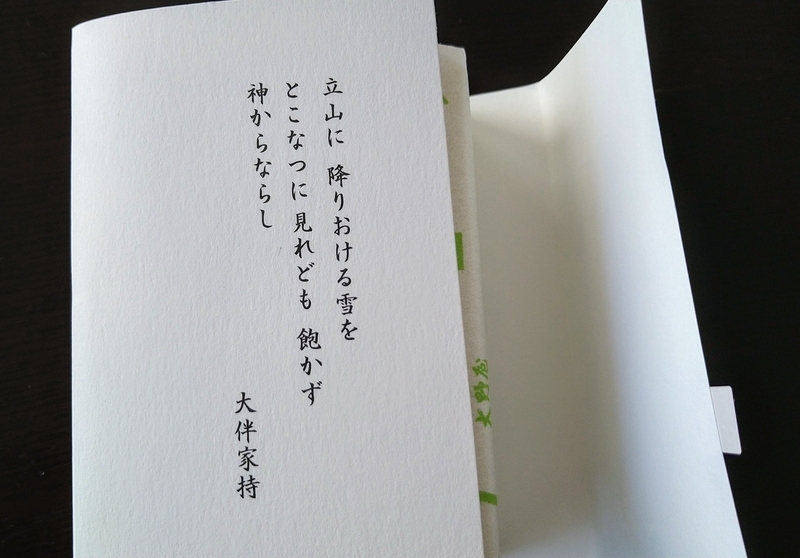 立山に 降りおける雪を
とこなつに 見れども 飽かず
神からならし
大伴家持
大野屋